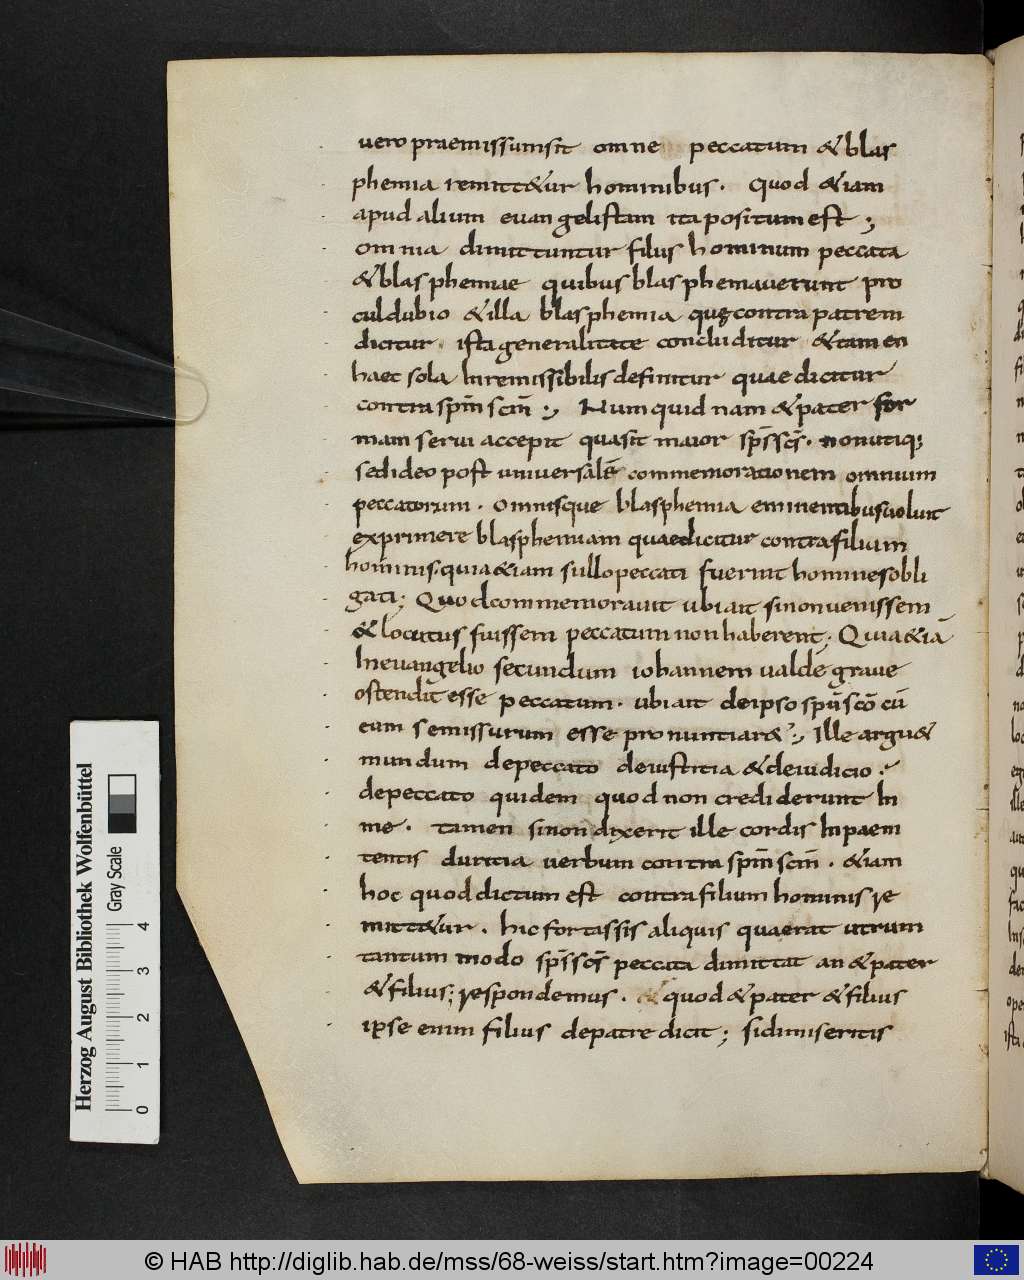 uero praemissum sit omne peccatum & blas
phemia remitt&ur hominibus. Quod &iam
apud alium euangelistam ita positum est;
omnia dimittuntur filiis hominum peccata
& blasphemiae quibus blasphemauerunt pro
culdubio & illa blasphemia quę contra patrem
dicitur. ista generalitate concluditur & tamen
haec sola Inremissibilis definitur quae dicitur
contra spm̄ scm̄; Numquid nam & pater for
mam serui accepit quasit maior sps̄ scs̄. non utiq;
sed ideo post uniuersalē commemorationem omnium
peccatorum. omnisque blasphemia eminentibus uoluit
exprimere blasphemiam quae dicitur contra filium
hominis. quia &iam sullo peccati fuerint homines obli
gati; Quod commemorauit ubi ait si non uenissem
& locutus fuissem peccatum non haberent; Quia &iā
In euangelio secundum iohannem ualde graue
ostendit esse peccatum. ubi ait de ipso spū scō cū
eum se missurum esse pronuntiar&; Ille argu&
mundum de peccato de iustitia & de iudicio.
de peccato quidem quod non crediderunt In
me. tamen si non dixerit ille cordis Inpaeni
tentis duritia uerbum contra spm̄ scm̄. &iam
hoc quod dictum est contra filium hominis re
mitt&ur. hic fortassis aliquis quaerat utrum
tantum modo sps̄ scs̄ peccata dimittat an & pater
& filius; respondemus. quod & pater & filius
ipse enim filius de patre dicit; si dimiseritis
Herzog August Bibliothek Wolfenbüttel
Gray Scale
0 1 2 3 4
© HAB http://diglib.hab.de/mss/68-weiss/start.htm?image=00224